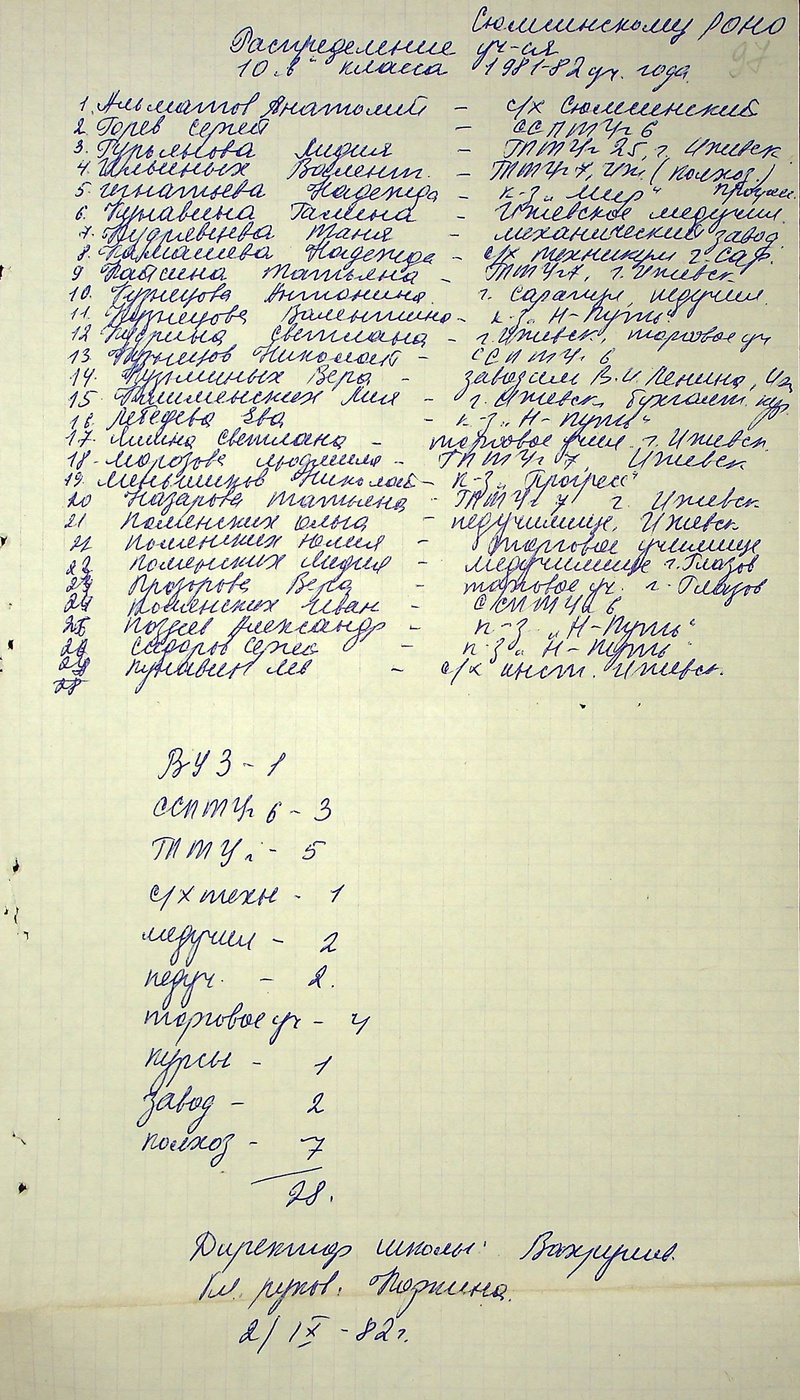 Сюмсинскому РОНО
97
Распределение уч-ся
10 "А" класса 1981-82 уч. года
1. Анатолий - с/х Сюмсинский
2. Горев Сергей - ССПТУ 6
3. Гурьянова Лидия - ТПТУ 25, г. Ижевск
4. Ильиных Валент. - ТПТУ 7, Иж. (колхоз.)
5. Игнатьева Надежда - к-з "Мир"
6. Кунавина Галина - Ижевское медучил.
7. Кудрявцева Таня - механический завод
8. Камашева Надежда - с/х техникум г. Сар.
9 Татьяна - ТПТУ 7, г. Ижевск
10. Кузнецова Антонина г. Сарапул, педучил.
11. Кузнецова Валентина - к-з "Н-Путь"
12 Светлана - г. Ижевск, торговое уч
13. Николай - ССПТУ 6
14. Кузьминых Вера - завод им В.И. Ленина, Иж
15. Лия - г. Ижевск, бухгалт. кур.
16. Лебедева Ева - к-з "Н-Путь"
17. Светлана - торговое учил. г. Ижевск.
18. Морозова Людмила - ТПТУ 7, Ижевск
19. Меньшиков Николай - к-з "Прогресс"
20 Назарова Татьяна - ТПТУ 7 г. Ижевск
21 Поленских Ольга - педучилище, Ижевск
22 Поленских Юлия - торговое училище
23 Поленских Лидия - медучилище г. Глазов
24 Прозорова Вера - торговое уч. г. Глазов
Поленских Иван - ССПТУ 6
Поздеев Александр - к-з "Н-Путь"
Сидоров Сергей - к-з "Н-Путь"
Кунавин Лев - с/х инст. Ижевск.
28
ВУЗ - 1
ССПТУ 6 - 3
ТПТУ - 5
с/х техн - 1
медучил - 2
педуч. - 2.
торговое уч - 4
курсы - 1
завод - 2
колхоз - 7
28.
Директор школы: Вахрушев.
Кл. руков.
2/IX - 82 г.